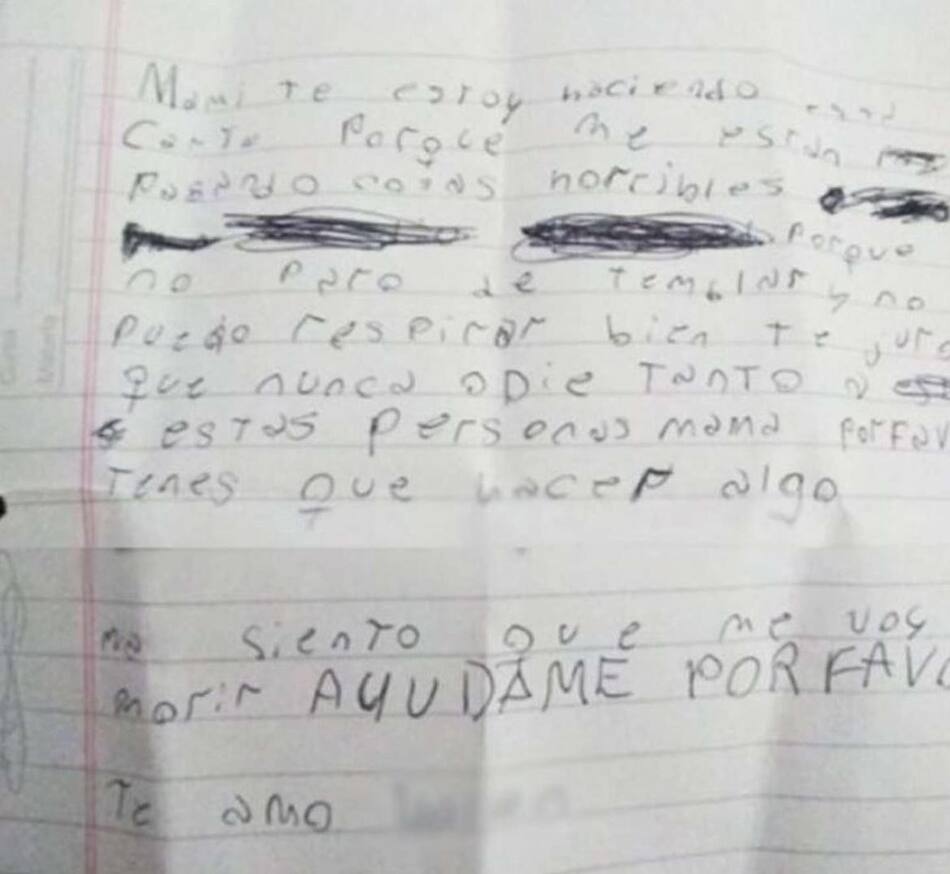 Mami te estoy haciendo esta
Carta Porque me estan
Pasando cosas horribles
Porque
no Paro de Temblar y no
Puedo respirar bien Te juro
que nunca odie TanTO a
estas Personas mama PorFav
Tenes que hacer algo
siento que me voy
morir AYUDAME POR FAVO
Te amo